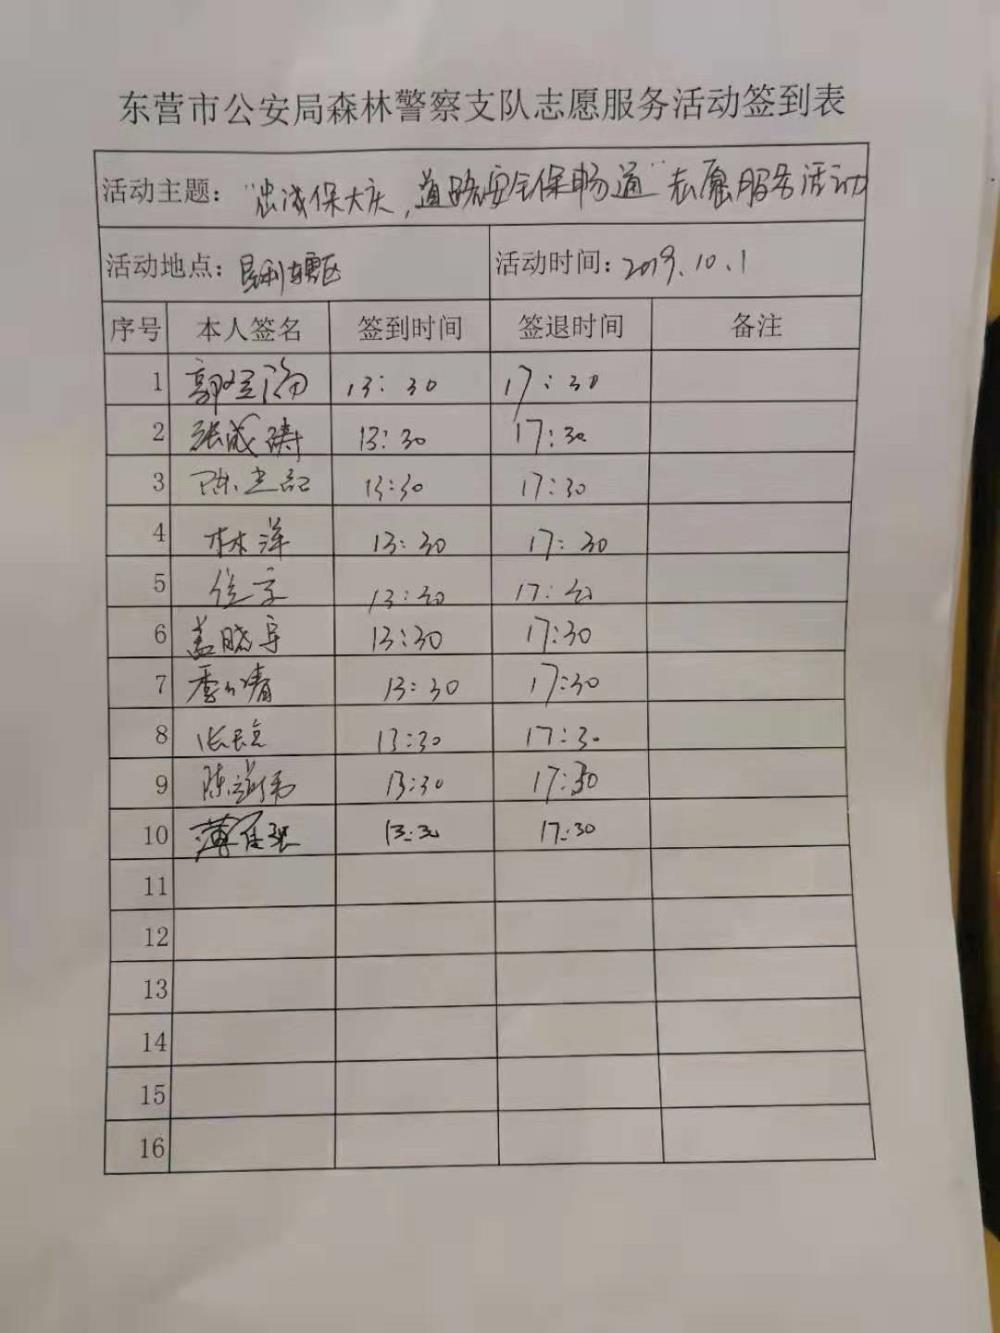 东营市公安局森林警察支队志愿服务活动签到表
活动主题：“忠诚保大庆，道路安全保畅通”志愿服务活动
活动地点：垦利辖区 活动时间：2019.10.1
序号 本人签名 签到时间 签退时间 备注
1 13:30 17:30
2 张成涛 13:30 17:30
3 陈 13:30 17:30
4 林洋 13:30 17:30
5 13:30 17:30
6 盖晓 13:30 17:30
7 13:30 17:30
8 13:30 17:30
9 陈 13:30 17:30
10 薄 13:30 17:30
11
12
13
14
15
16